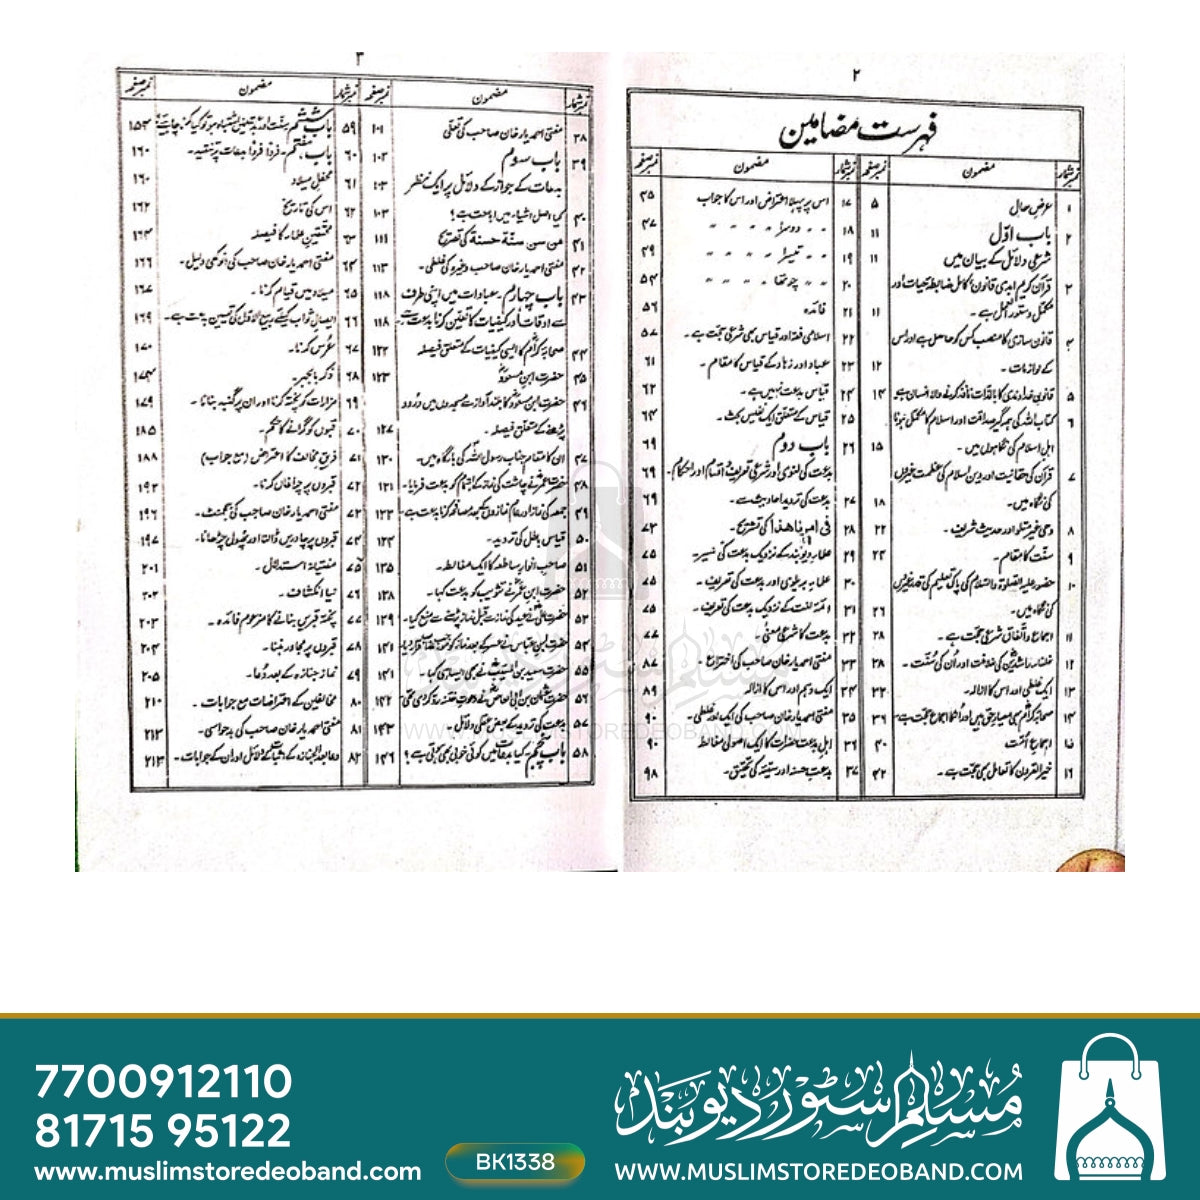 ۲
فہرست مضامین
نمبر شمار مضمون نمبر صفحہ
۱ عرض حال ۵
۲ باب اوّل ۱۱
شرعی دلائل کے بیان میں ۱۱
قرآن کریم ابدی قانون کامل ضابطۂ حیات اور
مکمل دستور العمل ہے۔ ۱۱
۴ قانون سازی کا منصب کس کو حاصل ہے اور اس
کے لوازمات۔ ۱۲
۵ قانون خداوندی کا بالذات نافذ کرنے والا انسان ہے ۱۴
۶ کتاب اللہ کی ہمہ گیر صداقت اور اسلام کا مکمل ہونا
اہل اسلام کی نگاہوں میں۔ ۱۵
۷ قرآن کی حقانیت اور دین اسلام کی عظمت غیروں
کی نگاہ میں۔ ۱۸
۸ وحی غیر متلو اور حدیث شریف۔ ۲۲
۹ سنّت کا مقام۔ ۲۴
۱۰ حضور علیہ الصلوٰۃ والسلام کی پاک تعلیم کی قدر غیروں
کی نگاہ میں۔ ۲۶
۱۱ اجماع و اتفاق شرعی حجت ہے۔ ۲۸
۱۲ خلفاء راشدین کی خلافت اور اُن کی سنّت۔ ۲۸
۱۳ ایک غلطی اور اس کا ازالہ۔ ۳۲
۱۴ صحابہ کرامؓ بھی معیار حق ہیں اور انکا اجماع حجت ہے۔ ۳۶
۱۵ اجماع امّت ۴۰
۱۶ خیر القرون کا تعامل بھی حجت ہے۔ ۴۲
نمبر شمار مضمون نمبر صفحہ
۱۷ اس پر پہلا اعتراض اور اس کا جواب ۴۵
۱۸ دوسرا 〃 〃 〃 〃 ۴۷
۱۹ تیسرا 〃 〃 〃 〃 ۴۹
۲۰ چوتھا 〃 〃 〃 〃 ۵۴
۲۱ فائدہ ۵۶
۲۲ اسلامی فقہ اور قیاس بھی شرعی حجت ہے۔ ۵۷
۲۳ عباد اور زہاد کے قیاس کا مقام۔ ۶۱
۲۴ قیاس بدعت نہیں ہے۔ ۶۲
۲۵ قیاس کے متعلق ایک نفیس بحث۔ ۶۴
۲۶ باب دوم ۶۹
بدعت کی لغوی اور شرعی تعریف اقسام اور احکام۔ ۶۹
۲۷ بدعت کی تردید احادیث سے۔ ۶۹
۲۸ فی امرنا ھذا کی تشریح۔ ۷۳
۲۹ علماء دیوبند کے نزدیک بدعت کی تفسیر۔ ۷۵
۳۰ علماء بریلوی اور بدعت کی تعریف۔ ۷۵
۳۱ ائمۂ لغت کے نزدیک بدعت کی تعریف۔ ۷۵
۳۲ بدعت کا شرعی معنیٰ۔ ۷۷
۳۳ مفتی احمد یار خان صاحب کی اختراع۔ ۸۷
۳۴ ایک وہم اور اس کا ازالہ ۸۹
۳۵ مفتی احمد یار خان صاحب کی ایک اور غلطی۔ ۹۰
۳۶ اہل بدعت حضرات کا ایک اصولی مغالطہ ۹۰
۳۷ بدعت حسنہ اور سیئہ کی تحقیق۔ ۹۸
۳
نمبر شمار مضمون نمبر صفحہ
۳۸ مفتی احمد یار خان صاحب کی تعلّی ۱۰۱
۳۹ باب سوم ۱۰۳
بدعات کے جواز کے دلائل پر ایک نظر ۱۰۳
۴۰ کیا اصل اشیاء میں اباحت ہے؟ ۱۰۳
۴۱ من سن سنّة حسنة کی تصریح ۱۱۱
۴۲ مفتی احمد یار خان صاحب وغیرہ کی غلطی۔ ۱۱۳
۴۳ باب چہارم۔ عبادات میں اپنی طرف ۱۱۸
سے اوقات اور کیفیات کا تعین کرنا بدعت ہے ۱۱۸
۴۴ صحابہ کرامؓ کا ایسی کیفیات کے متعلق فیصلہ ۱۲۲
۴۵ حضرت ابن مسعودؓ ۱۲۳
۴۶ حضرت ابن مسعودؓ کا بلند آواز سے مسجدوں میں درود
پڑھنے کے متعلق فیصلہ۔ ۱۲۷
۴۷ ان کا مقام جناب رسول اللہ کی بارگاہ میں۔ ۱۳۰
۴۸ حضرت عمرؓ نے چاشت کی نماز کے اہتمام کو بدعت فرمایا۔ ۱۳۱
۴۹ جمعہ کی نماز اور عام نمازوں کے بعد مصافحہ کرنا بدعت ہے۔ ۱۳۳
۵۰ قیاس باطل کی تردید۔ ۱۳۴
۵۱ صاحب انوار ساطعہ کا ایک مغالطہ۔ ۱۳۵
۵۲ حضرت ابن عمرؓ نے تثویب کو بدعت کہا۔ ۱۳۸
۵۳ حضرت علیؓ نے عید کی نماز سے قبل نماز پڑھنے سے منع کیا۔ ۱۳۹
۵۴ حضرت ابن عباس نے بعد نماز کو ۱۴۱
۵۵ حضرت سعید بن المسیبؒ نے بھی ایسا ہی کیا۔ ۱۴۱
۵۶ حضرت عثمان بن ابی العاصؓ نے دعوت ختنہ رد کر دی تھی ۱۴۲
۵۷ بدعت کی تردید کے بعض عقلی دلائل۔ ۱۴۳
۵۸ باب پنجم۔ کیا بدعات میں کوئی خوبی بھی ہوتی ہے؟ ۱۴۶
نمبر شمار مضمون نمبر صفحہ
۵۹ باب ششم سنت اور بدعت میں اشتباہ ہو تو کیا کرنا چاہیے؟ ۱۵۳
۶۰ باب ہفتم۔ فرداً فرداً بدعات پر تنقید۔ ۱۶۰
۶۱ محفل میلاد ۱۶۰
۶۲ اس کی تاریخ ۱۶۲
۶۳ محققین علماء کا فیصلہ ۱۶۴
۶۴ مفتی احمد یار خان صاحب کی انوکھی دلیل۔ ۱۶۶
۶۵ میلاد میں قیام کرنا۔ ۱۶۷
۶۶ ایصال ثواب کیلئے ربیع الاول کی تعیین بدعت ہے۔ ۱۶۹
۶۷ عُرس کرنا۔ ۱۷۰
۶۸ ذکر بالجہر۔ ۱۷۴
۶۹ مزارات کو پختہ کرنا اور ان پر گنبد بنانا۔ ۱۷۹
۷۰ قبوں کو گرانے کا حکم۔ ۱۸۵
۷۱ فریق مخالف کا اعتراض (مع جواب)۔ ۱۸۸
۷۲ قبروں پر چراغاں کرنا۔ ۱۹۳
۷۳ مفتی احمد یار خان صاحب کی بیخبنٹ۔ ۱۹۶
۷۴ قبروں پر چادریں ڈالنا اور پھول چڑھانا۔ ۱۹۷
۷۵ مفتیانہ استدلال۔ ۲۰۱
۷۶ نیا انکشاف۔ ۲۰۲
۷۷ پختہ قبریں بنانے کا مزعوم فائدہ۔ ۲۰۳
۷۸ قبروں پر مجاور بننا۔ ۲۰۴
۷۹ نماز جنازہ کے بعد دُعا۔ ۲۰۵
۸۰ مخالفین کے اعتراضات مع جوابات۔ ۲۱۰
۸۱ مفتی احمد یار خان صاحب کی بدحواسی۔ ۲۱۳
۸۲ دعا بعد الجنازہ کے دلائل اور ان کے جوابات۔ ۲۱۳
WWW.MUSLIMSTOREDEOBAND.COM
7700912110
81715 95122
www.muslimstoredeoband.com
BK1338
مسلم سٹور دیوبند
WWW.MUSLIMSTOREDEOBAND.COM